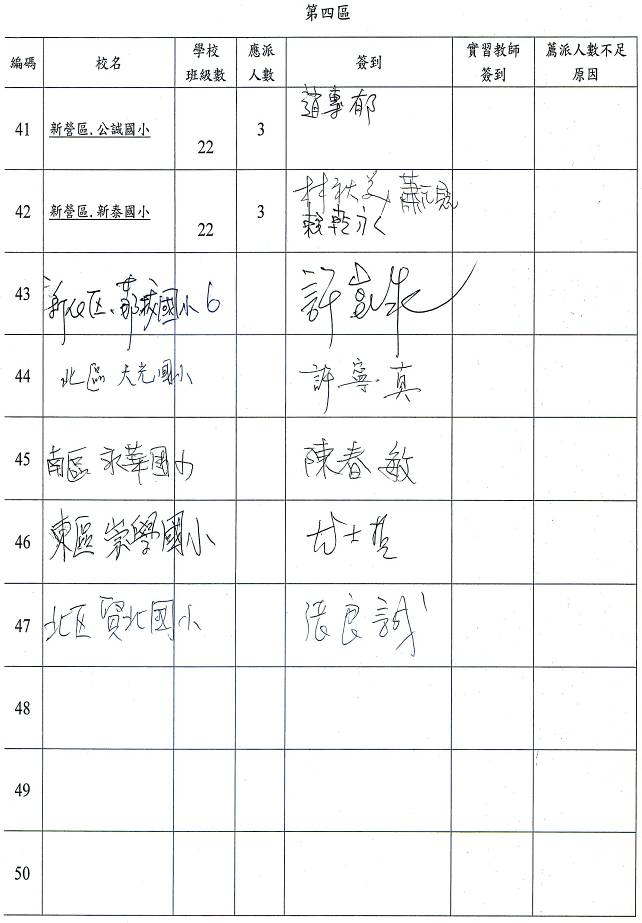 第四區
編碼 校名 學校班級數 應派人數 簽到 實習教師簽到 薦派人數不足原因
41 新營區.公誠國小 22 3 趙專郁
42 新營區.新泰國小 22 3 林秋美
43 國小 6 許
44 北區 大光國小 許寧真
45 南區 永華國小 陳春敏
46 東區 崇學國小
47 北区 賢北國小 張良誠
48
49
50